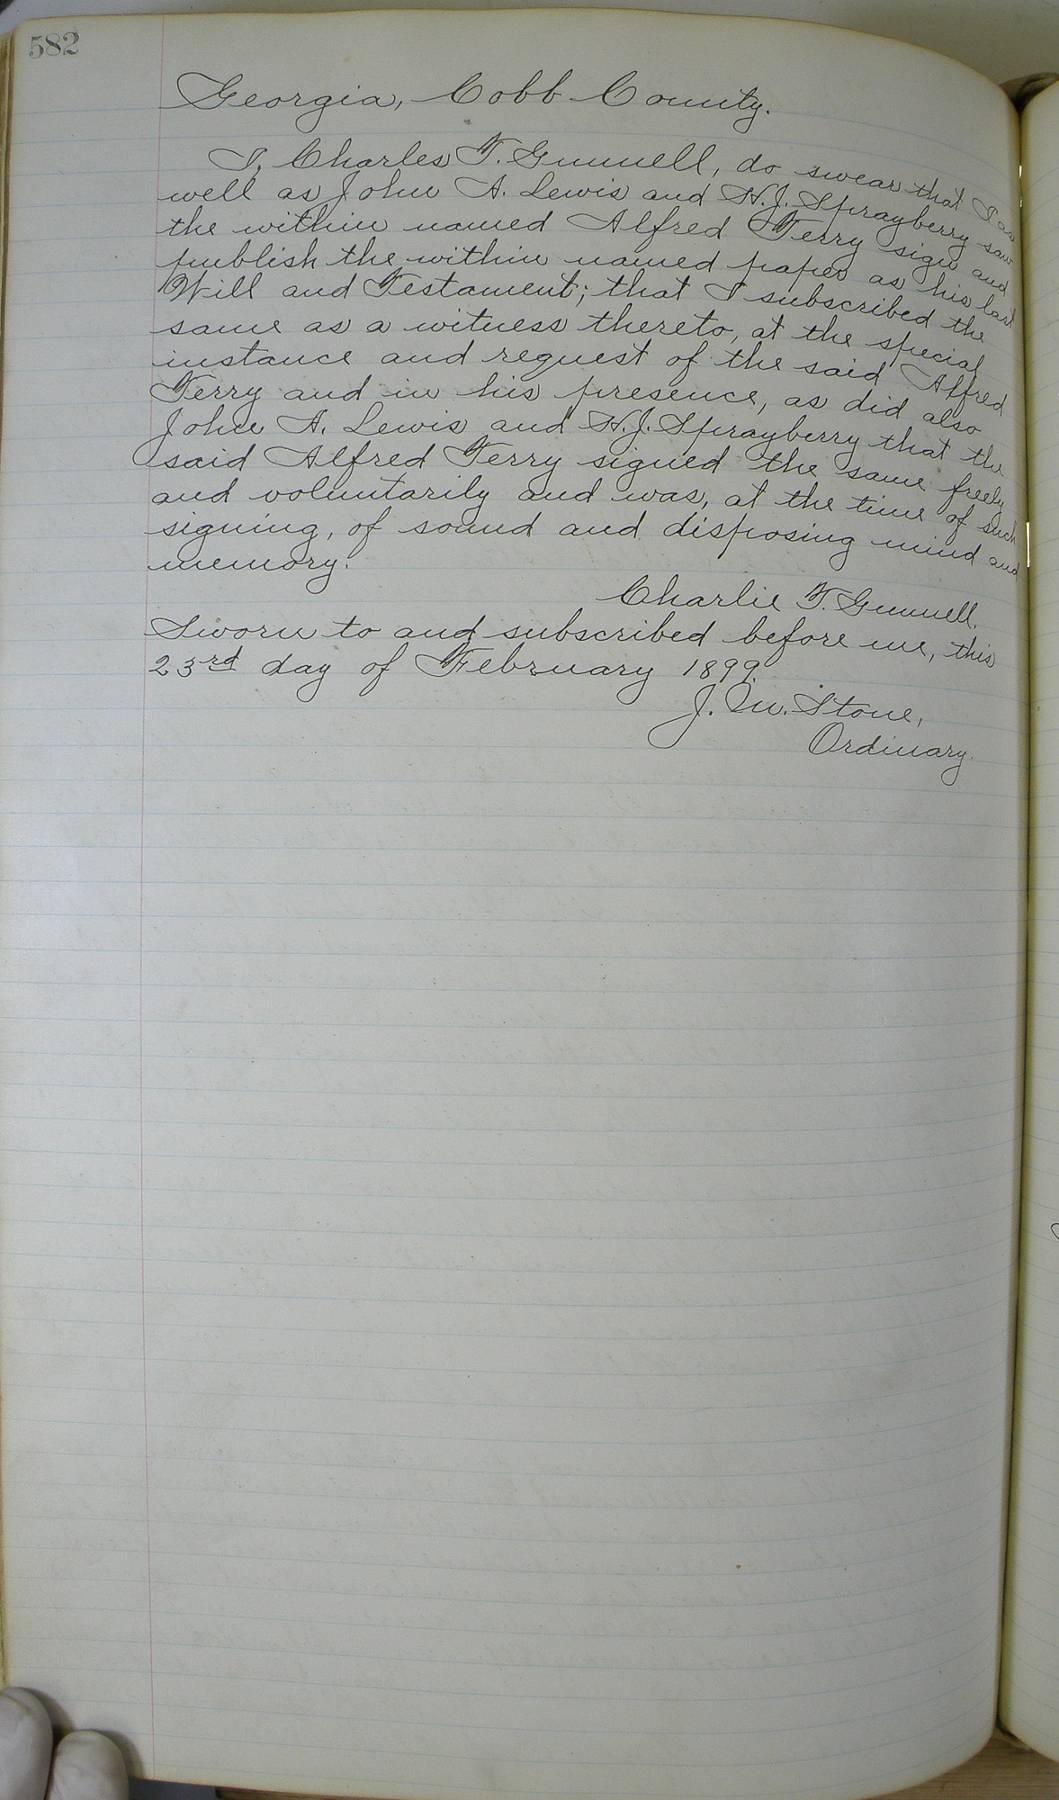 582
Georgia, Cobb County.
I, Charles T. Gunnell, do swear that I as
well as John A. Lewis and H. J. Sprayberry saw
the within named Alfred Terry sign and
publish the within named paper as his last
Will and Testament; that I subscribed the
same as a witness thereto, at the special
instance and request of the said Alfred
Terry and in his presence, as did also
John A. Lewis and H. J. Sprayberry that the
said Alfred Terry signed the same freely
and voluntarily and was, at the time of such
signing, of sound and disposing mind and
memory.
Charlie T. Gunnell.
Sworn to and subscribed before me, this
23rd day of February 1899.
J. M. Stone,
Ordinary.